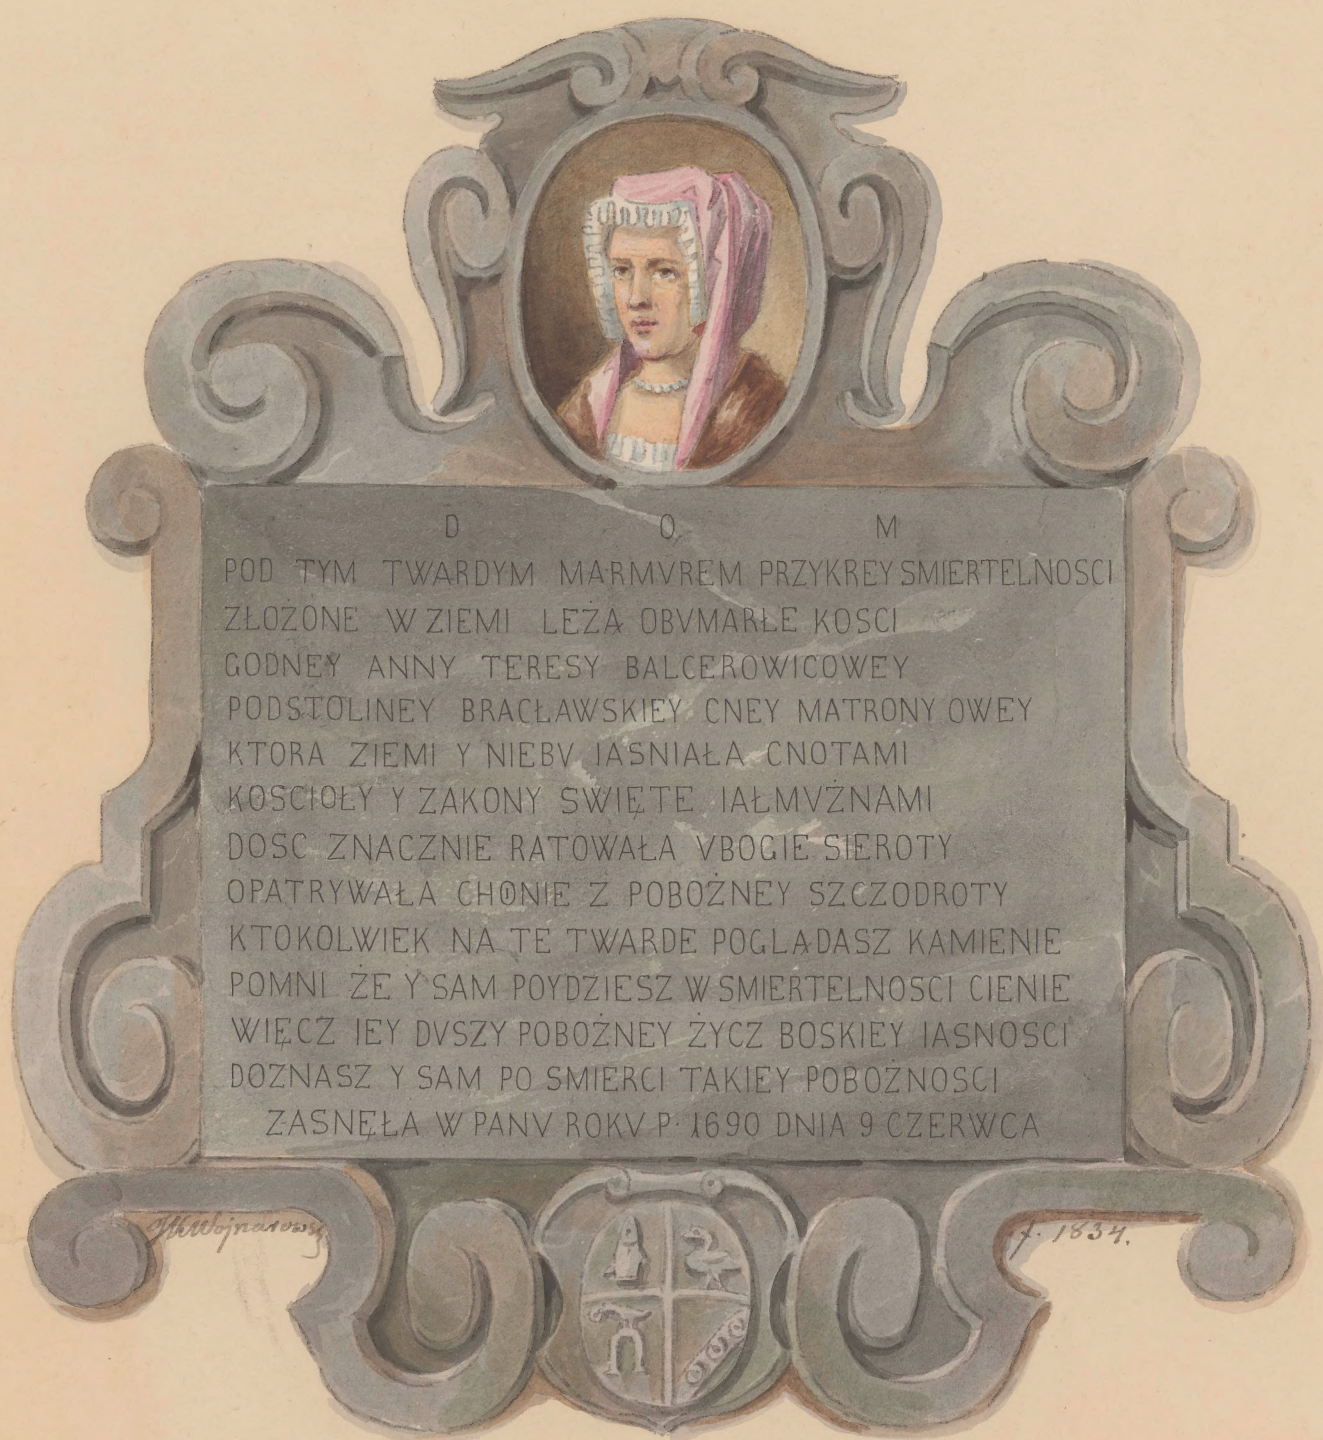 D O M
POD TYM TWARDYM MARMVREM PRZYKREY SMIERTELNOSCI
ZŁOŻONE W ZIEMI LEŻA OBVMARŁE KOSCI
GODNEY ANNY TERESY BALCEROWICOWEY
PODSTOLINEY BRACŁAWSKIEY CNEY MATRONY OWEY
KTORA ZIEMI Y NIEBV IASNIAŁA CNOTAMI
KOSCIOŁY Y ZAKONY SWIĘTE IAŁMVŻNAMI
DOSC ZNACZNIE RATOWAŁA VBOGIE SIEROTY
OPATRYWAŁA CHOINIE Z POBOŻNEY SZCZODROTY
KTOKOLWIEK NA TE TWARDE POGLĄDASZ KAMIENIE
POMNI ŻE Y SAM POYDZIESZ W SMIERTELNOSCI CIENIE
WIĘCZ IEY DVSZY POBOŻNEY ŻYCZ BOSKIEY IASNOSCI
DOZNASZ Y SAM PO SMIERCI TAKIEY POBOŻNOSCI
ZASNĘŁA W PANV ROKV P. 1690 DNIA 9 CZERWCA
f. 1834.